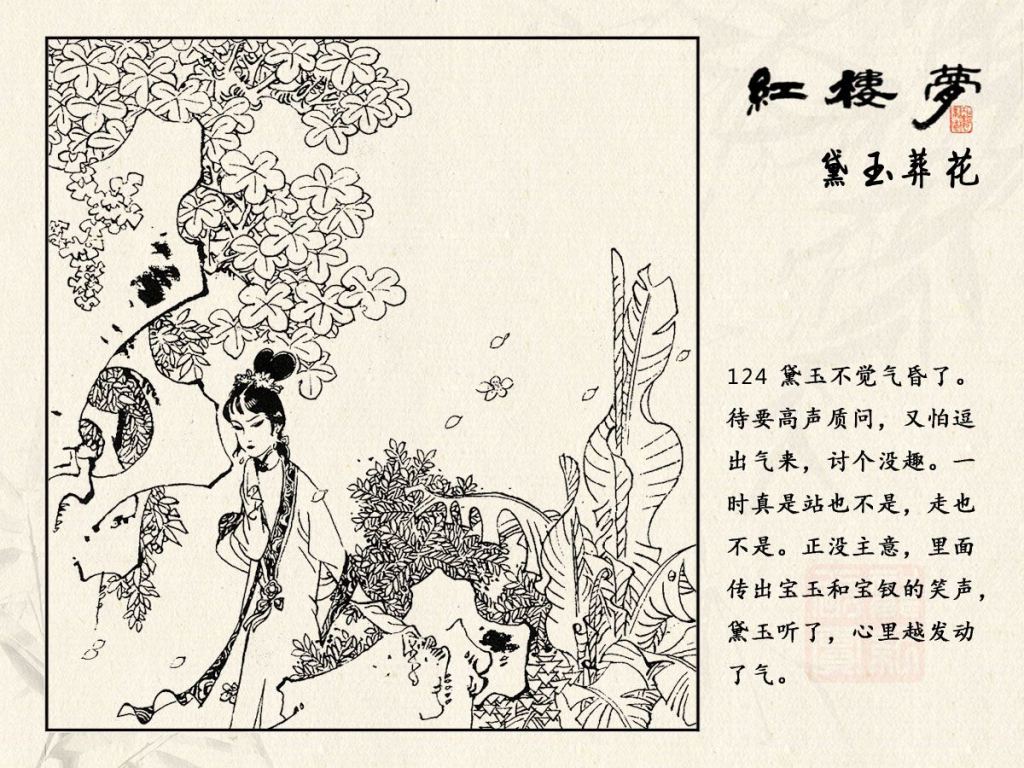 紅樓夢
黛玉葬花
124 黛玉不觉气昏了。
待要高声质问，又怕逗
出气来，讨个没趣。一
时真是站也不是，走也
不是。正没主意，里面
传出宝玉和宝钗的笑声，
黛玉听了，心里越发动
了气。